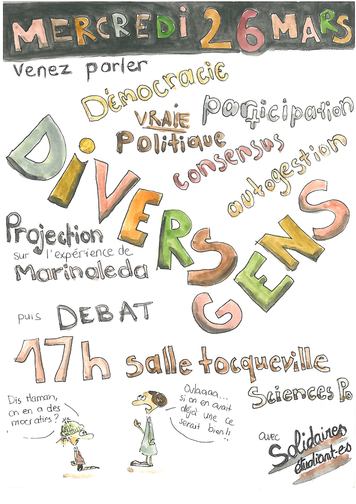 MERCREDI 26 MARS
venez parler
Démocratie
VRAIE
participation
Politique
consensus
autogestion
DiVERS
GENS
Projection
sur l'expérience de
Marinaleda
puis DEBAT
17h salle tocqueville
Sciences Po
Dis Maman,
on en a des
mocraties ?
Oulaaaa...
si on en avait
déjà une ce
serait bien !
avec
Solidaires
étudiant·es